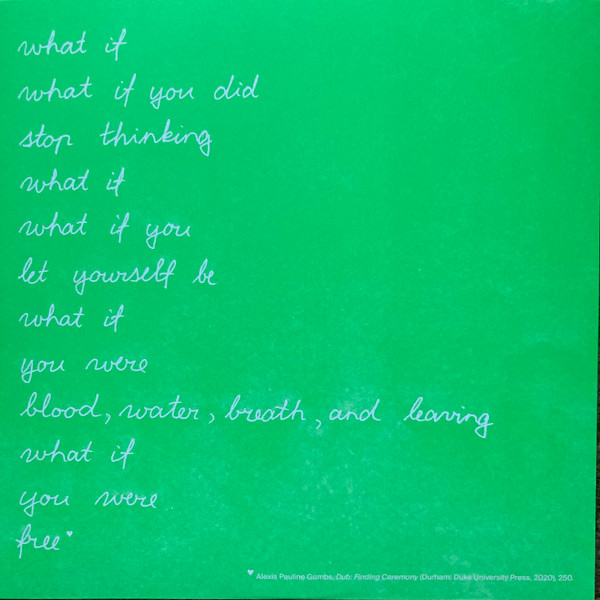 what if
what if you did
stop thinking
what if
what if you
let yourself be
what if
you were
blood, water, breath, and leaving
what if
you were
free♥
♥ Alexis Pauline Gumbs, Dub: Finding Ceremony (Durham: Duke University Press, 2020), 250.